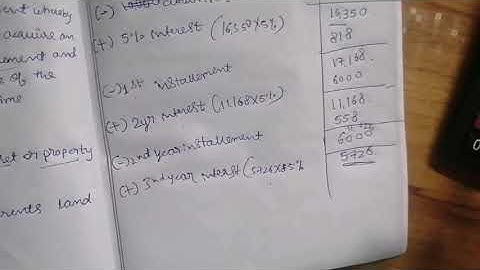 ent whereby
acquire an
ement and
e of the
ime
et or property
rents land
(-)
(+) 5% interest (16350×5%)
(-) 1st installement
(+) 2yr interest (11,168×5%)
(-) 2nd year installement
(+) 3rd year interst (5726×5%
16350
818
17,168
6000
11,168
558
6000
5726